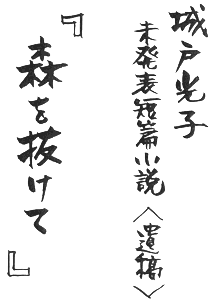 城戸光子
未発表短篇小説〈遺稿〉
『森を抜けて』